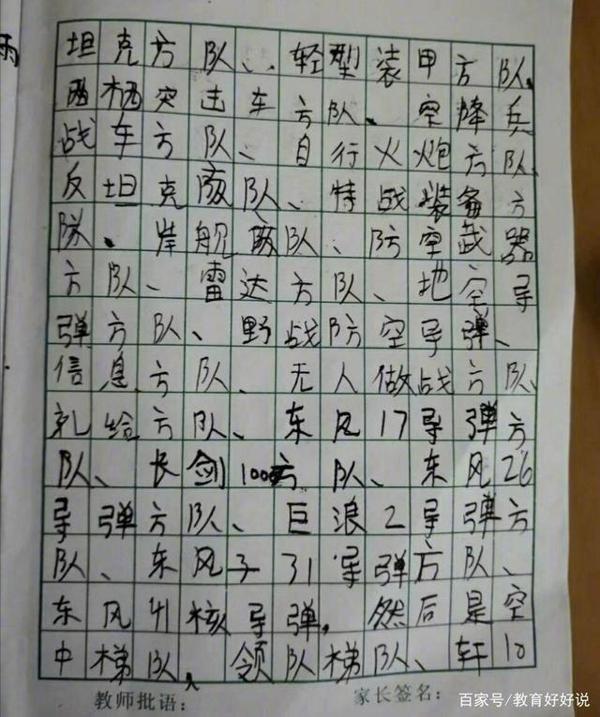 坦克方队、轻型装甲方队、
两栖突击车方队、空降兵
战车方队、自行火炮方队、
反坦克方队、特战装备方
队、岸舰方队、防空武器
方队、雷达方队、地空导
弹方队、野战防空导弹、
信息方队、无人做战方队、
礼给方队、东风17导弹方
队、长剑100方队、东风26
导弹方队、巨浪2导弹方
队、东风子31导弹方队、
东风41核导弹,然后是空
中梯队、领队梯队、轩10
教师批语: 家长签名:
百家号/教育好好说
雨